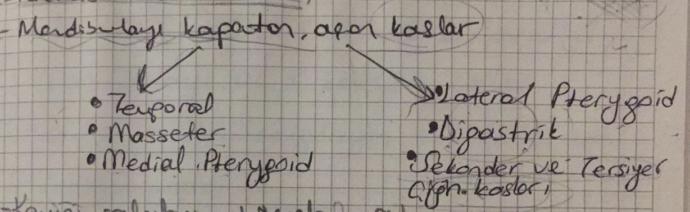 - Mandibulayı kapatan, açan kaslar
• Temporal
• Masseter
• Medial Pterygoid
• Lateral Pterygoid
• Digastrik
• Sekonder ve Tersiyer
çiğn. kasları